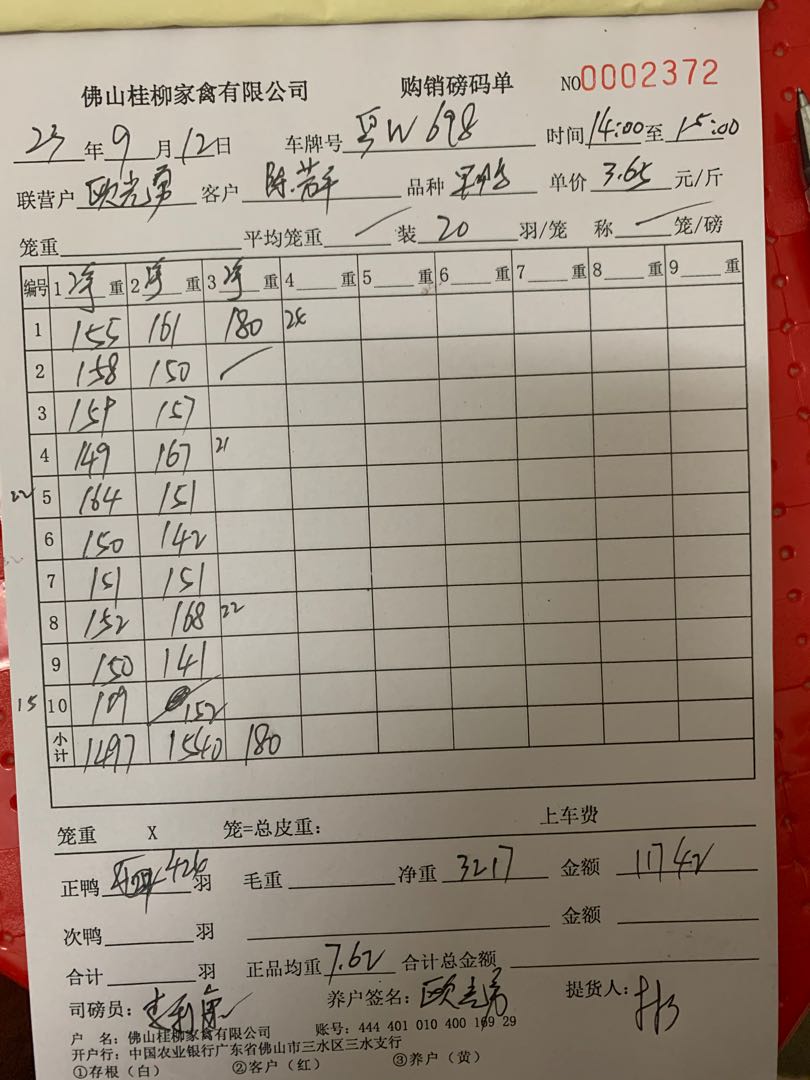 佛山桂柳家禽有限公司 购销磅码单 NO0002372
23年9月12日 车牌号 粤W698 时间14:00至15:00
联营户 欧光勇 客户 品种 单价 3.65 元/斤
笼重 平均笼重 / 装 20 羽/笼 称 / 笼/磅
编号 1 净 重 2 净 重 3 净 重 4 重 5 重 6 重 7 重 8 重 9 重
1 155 161 180 24
2 158 150 /
3 159 157
4 149 167 21
22 5 164 151
6 150 142
7 151 151
8 152 168 22
9 150 141
15 10 109 152
小计 1497 1540 180
笼重 X 笼=总皮重: 上车费
正鸭 426 羽 毛重 净重 3217 金额 11742
次鸭 羽 金额
合计 羽 正品均重 7.62 合计总金额
司磅员: 养户签名: 欧光勇 提货人:
户 名: 佛山桂柳家禽有限公司 账号: 444 401 010 400 169 29
开户行: 中国农业银行广东省佛山市三水区三水支行
①存根(白) ②客户(红) ③养户(黄)